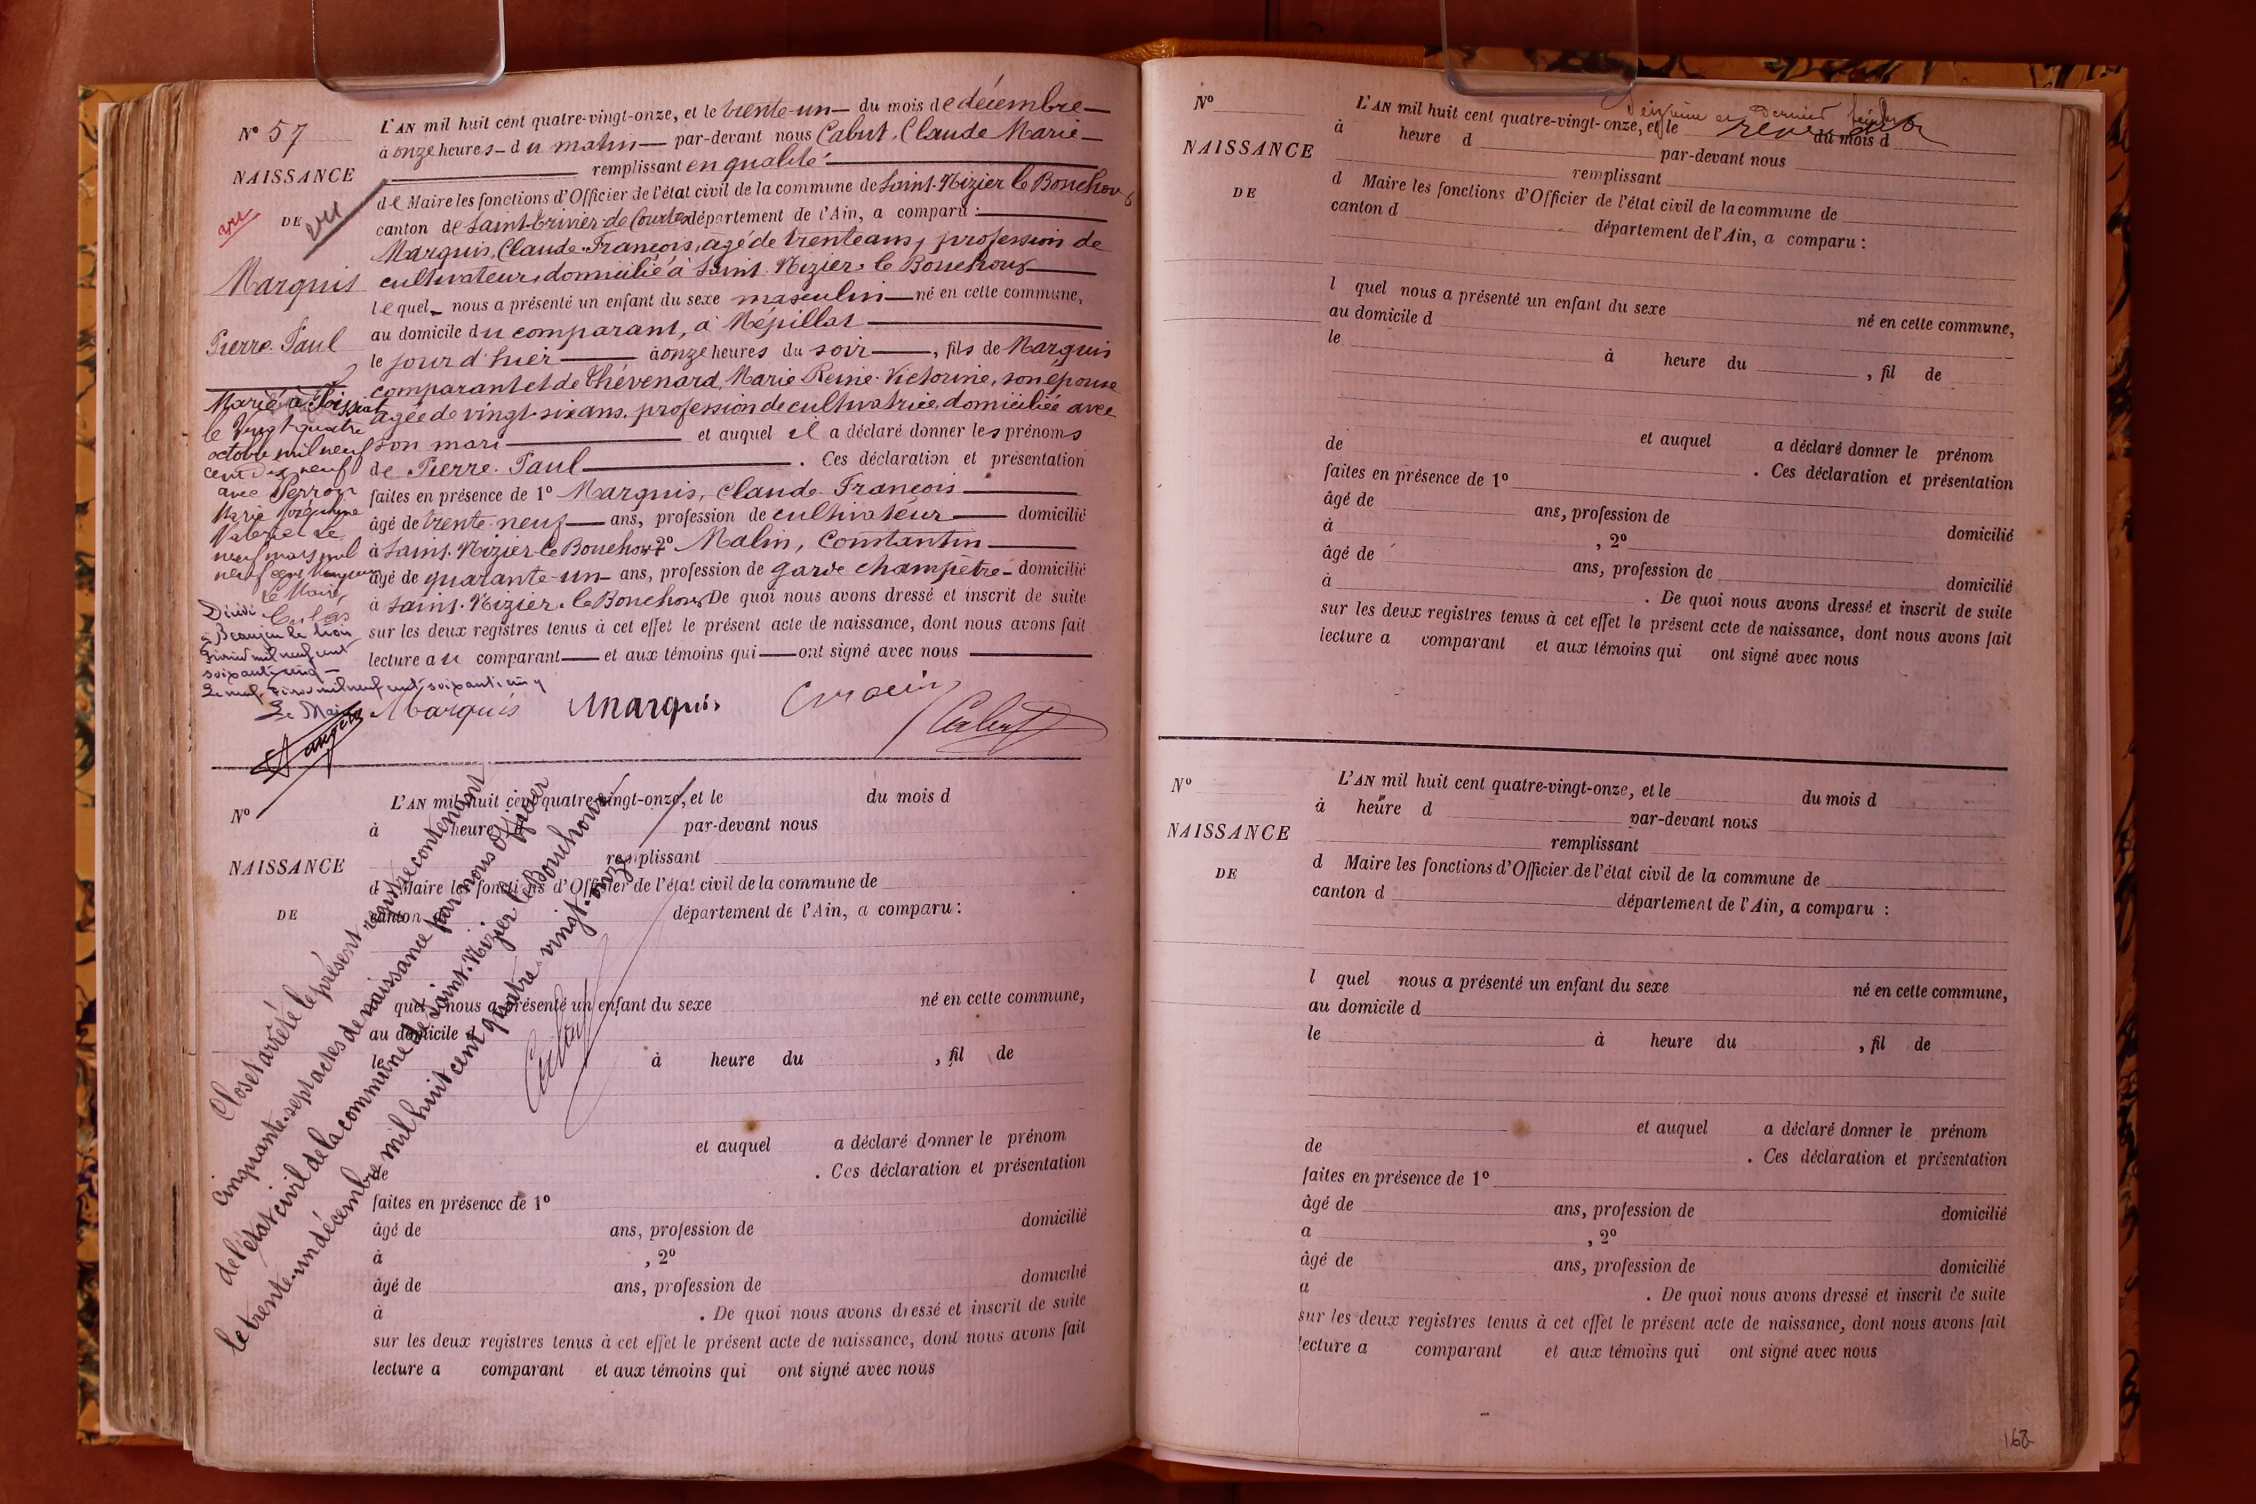 N° 57
NAISSANCE
DE
vu
vu
Marquis
Pierre Paul
L'AN mil huit cent quatre-vingt-onze, et le trente-un du mois de décembre
à onze heures du matin par-devant nous Cabut, Claude Marie
remplissant en qualité
de Maire les fonctions d'Officier de l'état civil de la commune de Saint-Nizier le Bouchoux
canton de Saint-Trivier-de Courtes département de l'Ain, a comparu :
Marquis, Claude-François, âgé de trente ans, profession de
cultivateur, domicilié à Saint-Nizier-le Bouchoux
lequel nous a présenté un enfant du sexe masculin né en cette commune,
au domicile du comparant, à Mépillat
le jour d'hier à onze heures du soir, fils de Marquis
comparant et de Thévenard, Marie Reine-Victorine, son épouse
âgée de vingt-six ans, profession de cultivatrice, domiciliée avec
son mari et auquel il a déclaré donner les prénoms
de Pierre-Paul. Ces déclaration et présentation
faites en présence de 1° Marquis, Claude-François
âgé de trente-neuf ans, profession de cultivateur domicilié
à Saint-Nizier-le Bouchoux 2° Malin, Constantin
âgé de quarante-un ans, profession de garde champêtre domicilié
à Saint-Nizier-le Bouchoux De quoi nous avons dressé et inscrit de suite
sur les deux registres tenus à cet effet le présent acte de naissance, dont nous avons fait
lecture au comparant et aux témoins qui ont signé avec nous
Marquis Marquis Cabut
Marié à Foissiat
le vingt-quatre
octobre mil neuf
cent dix neuf
avec Perron
Marie
le
neuf mars mil
neuf cent
Le Maire,
Décédé
à Beaujeu le trois
mil neuf cent
soixante cinq
Le neuf mil neuf cent soixante cinq
Le Maire
N°
NAISSANCE
DE
L'AN mil huit cent quatre-vingt-onze, et le du mois d
à heure par-devant nous
remplissant
d Maire les fonctions d'Officier de l'état civil de la commune de
canton département de l'Ain, a comparu :
quel nous a présenté un enfant du sexe né en cette commune,
au domicile d
le à heure du , fil de
et auquel a déclaré donner le prénom
de . Ces déclaration et présentation
faites en présence de 1°
âgé de ans, profession de domicilié
à , 2°
âgé de ans, profession de domicilié
à . De quoi nous avons dressé et inscrit de suite
sur les deux registres tenus à cet effet le présent acte de naissance, dont nous avons fait
lecture a comparant et aux témoins qui ont signé avec nous
Clos et arrêté le présent registre contenant
cinquante-sept actes de naissance par nous Officier
de l'état civil de la commune de Saint-Nizier le Bouchoux
le trente-un décembre mil huit cent quatre-vingt-onze
Cabut
N°
NAISSANCE
DE
L'AN mil huit cent quatre-vingt-onze, et le du mois d
et dernier
à heure d par-devant nous
remplissant
d Maire les fonctions d'Officier de l'état civil de la commune de
canton d département de l'Ain, a comparu :
l quel nous a présenté un enfant du sexe né en cette commune,
au domicile d
le à heure du , fil de
et auquel a déclaré donner le prénom
de . Ces déclaration et présentation
faites en présence de 1°
âgé de ans, profession de domicilié
à , 2°
âgé de ans, profession de domicilié
à . De quoi nous avons dressé et inscrit de suite
sur les deux registres tenus à cet effet le présent acte de naissance, dont nous avons fait
lecture a comparant et aux témoins qui ont signé avec nous
N°
NAISSANCE
DE
L'AN mil huit cent quatre-vingt-onze, et le du mois d
à heure d par-devant nous
remplissant
d Maire les fonctions d'Officier de l'état civil de la commune de
canton d département de l'Ain, a comparu :
l quel nous a présenté un enfant du sexe né en cette commune,
au domicile d
le à heure du , fil de
et auquel a déclaré donner le prénom
de . Ces déclaration et présentation
faites en présence de 1°
âgé de ans, profession de domicilié
a , 2°
âgé de ans, profession de domicilié
a . De quoi nous avons dressé et inscrit de suite
sur les deux registres tenus à cet effet le présent acte de naissance, dont nous avons fait
lecture a comparant et aux témoins qui ont signé avec nous
168